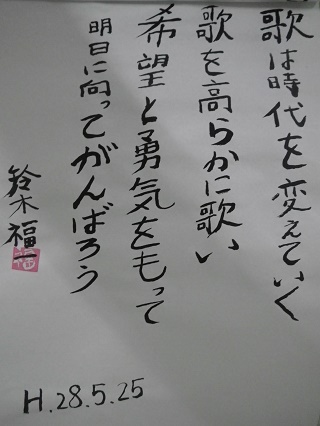 歌は時代を変えていく
歌を高らかに歌い
希望と勇気をもって
明日に向ってがんばろう
鈴木福一
福
H.28.5.25